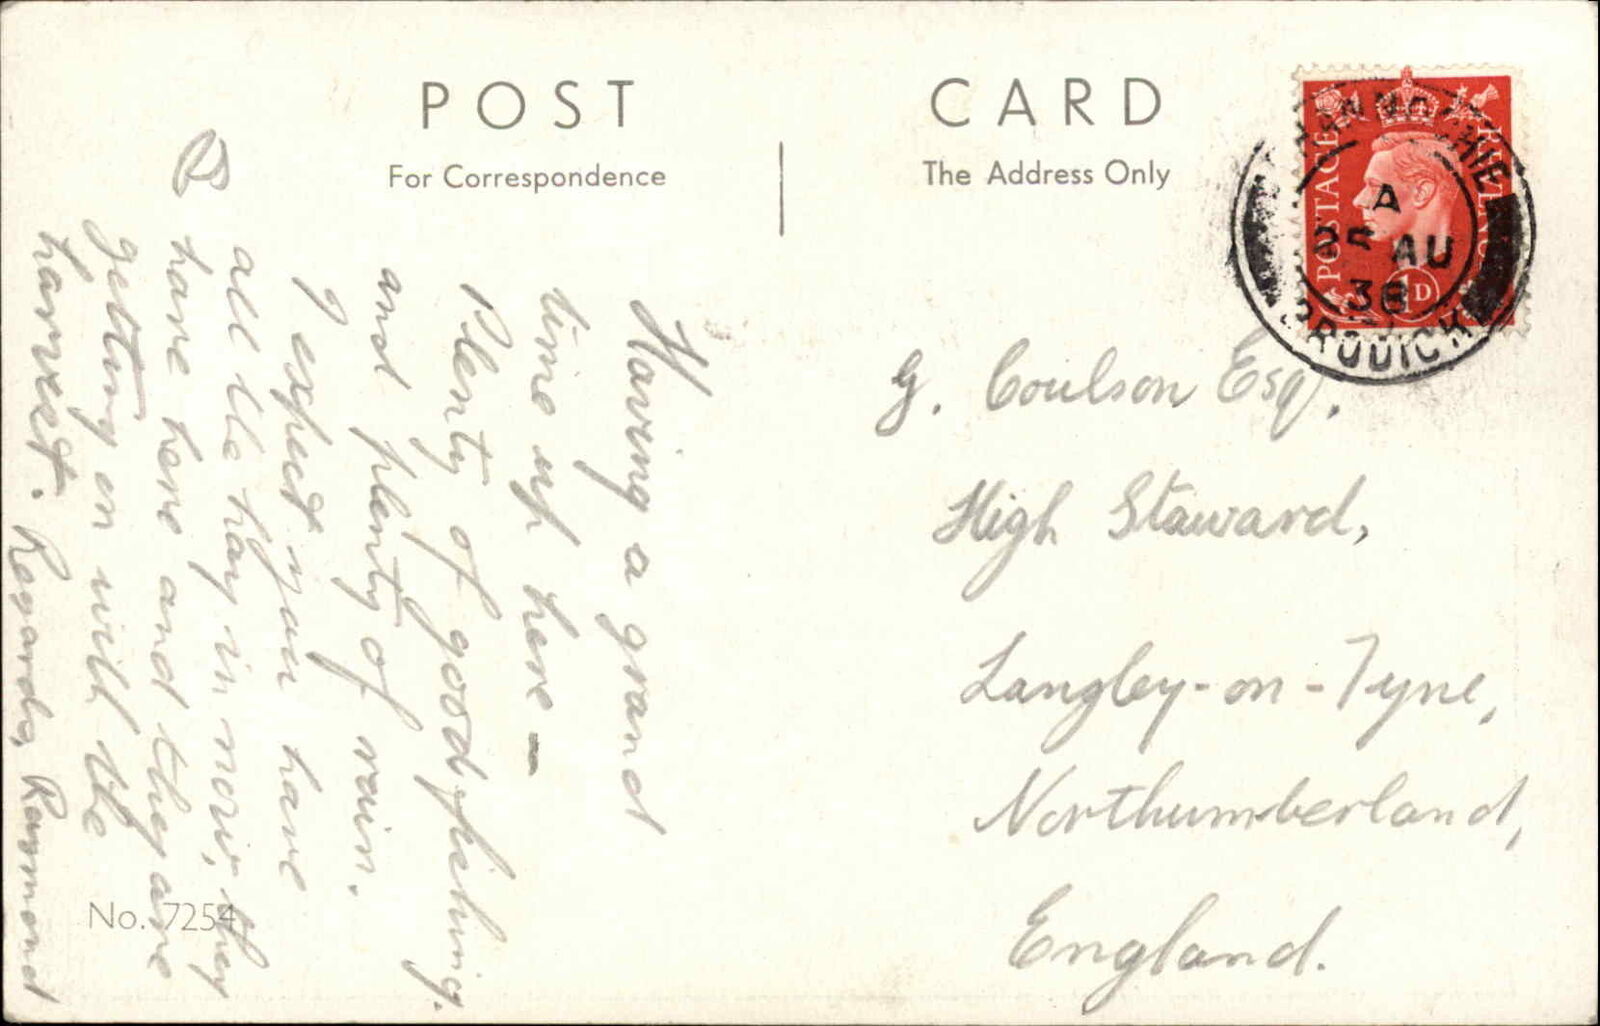 POST CARD
For Correspondence
The Address Only
POSTAGE
REVENUE
1D
A
25 AU
38
Having a grand
time up here -
Plenty of good fishing.
and plenty of rain.
I expect you have
all the hay in now, they
have here and they are
getting on with the
harvest. Regards, Raymond
No. 7254
G. Coulson Esq.
High Staward,
Langley-on-Tyne,
Northumberland,
England.